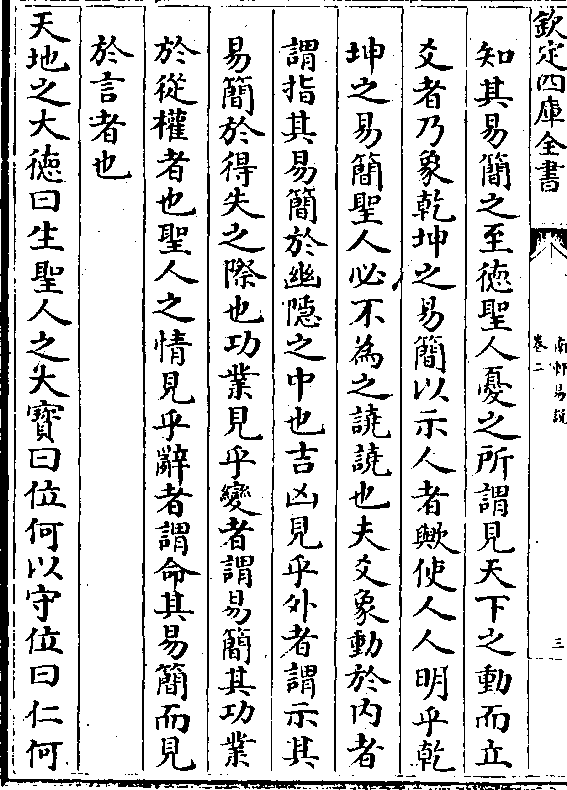 欽定四庫全書
南軒易說
卷二
三
知其易簡之至徳聖人憂之所謂見天下之動而立
爻者乃象乾坤之易簡以示人者歟使人人明乎乾
坤之易簡聖人必不為之譊譊也夫爻象動於内者
謂指其易簡於幽隠之中也吉凶見乎外者謂示其
易簡於得失之際也功業見乎變者謂易簡其功業
於從權者也聖人之情見乎辭者謂命其易簡而見
於言者也
天地之大徳曰生聖人之大寳曰位何以守位曰仁何